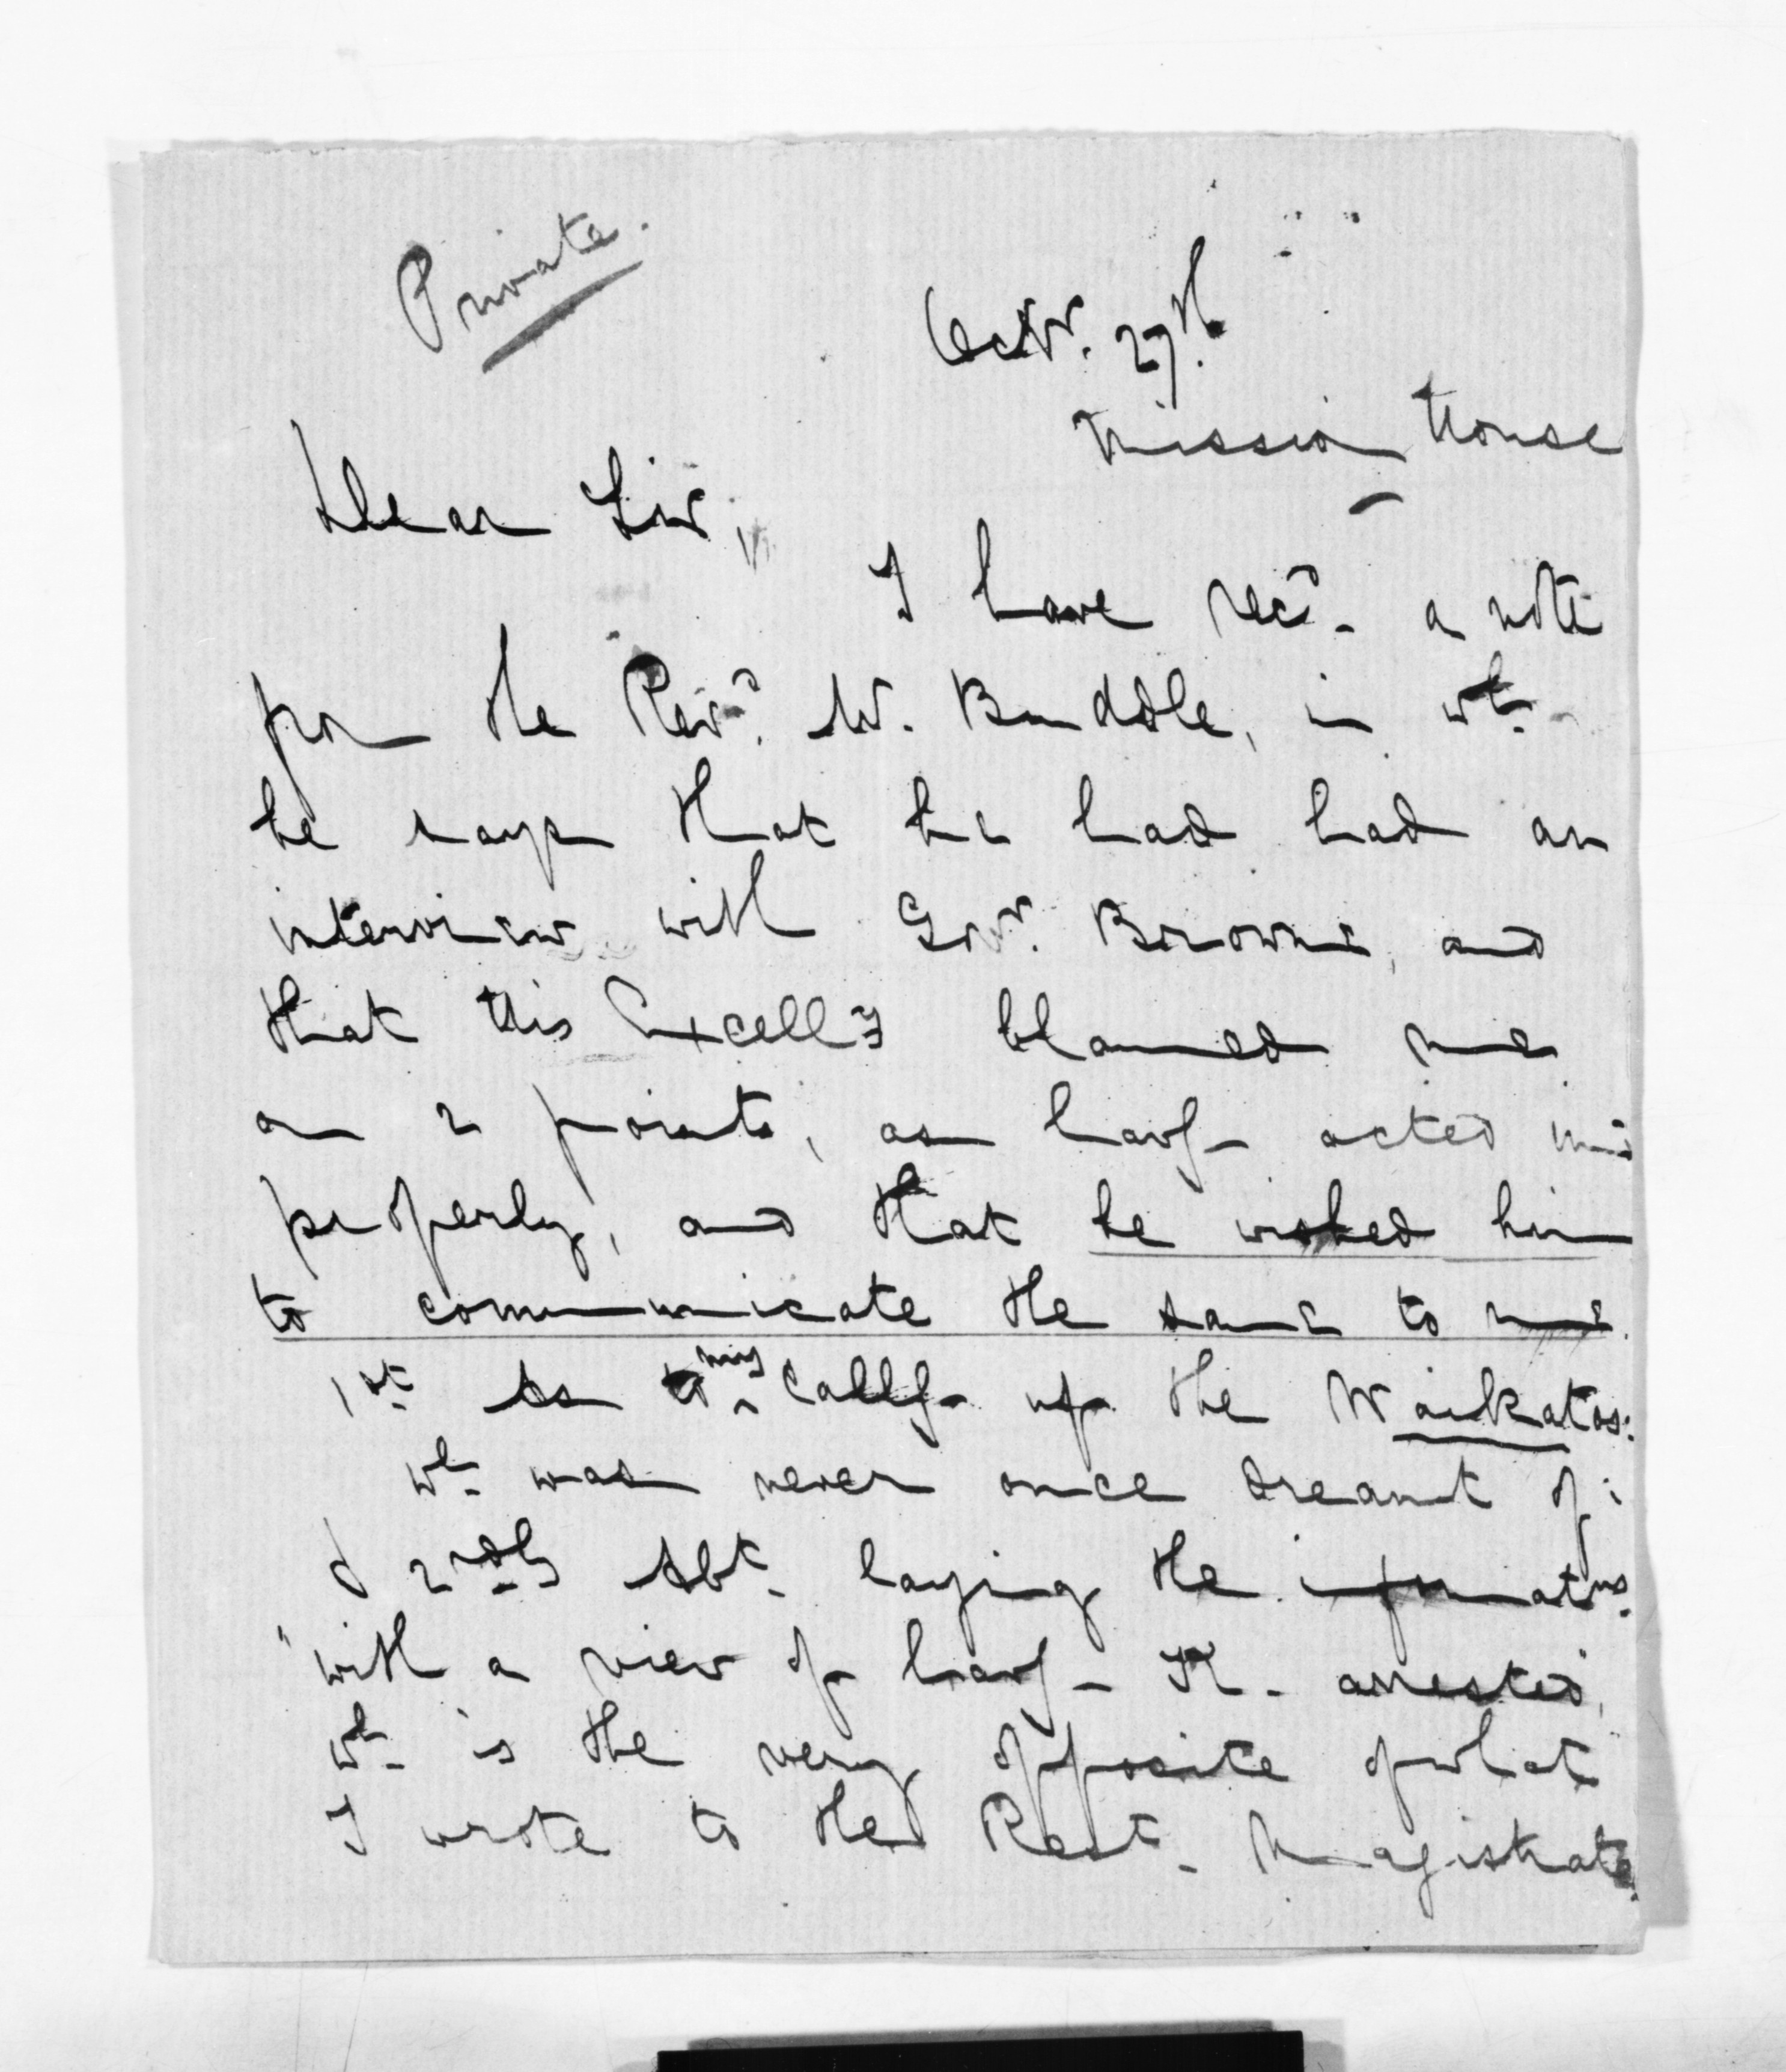 Private.
Octr. 27th
Mission House
Dear Sir,
I have recd. a note
from the Revd. Mr. Buddle, in wh.
he says that he had had an
interview with Govr. Browne, and
that His Excelly blamed me
on 2 points, as havg. acted im=
properly, and that he wished him
to communicate the same to me.
1st. As to my callg. up the Waikatos:
wh. was never once dreamt of:
& 2ndly Abt. laying the informatns.
"with a view of havg. K. arrested,"
wh. is the very opposite of what
I wrote to the Rest. Magistrate.